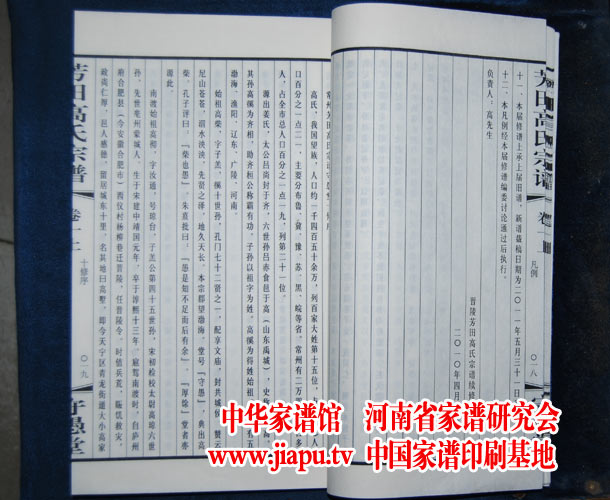 芳田高氏宗谱
卷一
凡例
〇一八
十一、本届修谱上承上届旧谱，新谱截稿日期为二〇一一年五月三十一日
十二、本凡例经本届修谱编委讨论通过后执行。
负责人：高先生
晋陵芳田高氏宗谱续修
二〇一〇年四月
常州芳田高氏宗谱守愚堂
高氏，我国望族，人口约一千四百五十余万，列百家大姓第十五位，占
口百分之一点二一，主要分布鲁、冀、豫、苏、黑、皖等省。常州有二万
人，占全市总人口百分之一点一九，列第二十一位。
源出姜氏，太公吕尚封于齐，六世孙吕赤食邑于高（山东禹城），史
其孙高傒为齐相，助齐桓公称霸有功，子孙以祖字为姓，高傒为得姓始祖。
渤海、渔阳、辽东、广陵、河南
始祖高柴，字子羔，傒十世孙，孔门七十二贤之一，配享文庙，封共城侯，赞云
足山苍苍，泗水泱泱，先贤之泽，地久天长。本宗郡望渤海，堂号「守愚」，典出高
柴，孔子评曰：「柴也愚」，朱熹批曰：「愚是如不足而后有余」「厚馀」堂者亦
源此。
南渡始祖高彻，字汝通，号琼台，子羔公第四十五世孙，宋初检校太尉高琼六世
孙，先世亳州蒙城人，生于宋建中靖国元年，卒于淳熙十三年，扈驾南渡时，自庐州
府合肥县（今安徽合肥市）西仪村杨柳巷迁晋陵，任晋陵令，时值兵荒，赈饥救灾，
政尚仁厚，邑人感德，留居城东十里，名其地曰高墅，即今天宁区青龙街道大小高家
芳田高氏宗谱
卷一上
十修序
〇一九
守愚堂
中华家谱馆 河南省家谱研究会
www.jiapu.tv 中国家谱印刷基地